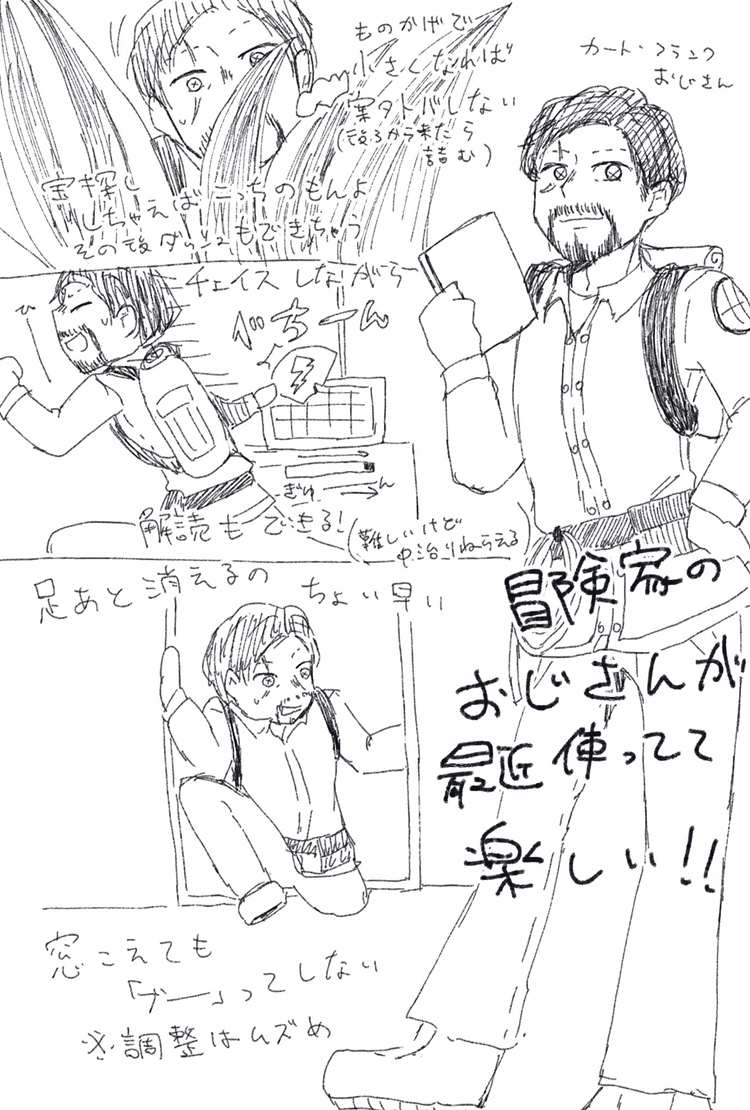 カート・フランク
おじさん
ものかげで
小さくなれば
案外バレない
(後ろから来たら
詰む)
宝探し
しちゃえばこっちのもんよ
その後ダウンもできちゃう
チェイスしながら
ばちーん
ぎゅーん
解読もできる!
(難しいけど
中治りねらえる)
足あと消えるの ちょい早い
窓こえても
「ブー」ってしない
※調整はムズめ
冒険家の
おじさんが
最近使ってて
楽しい!!